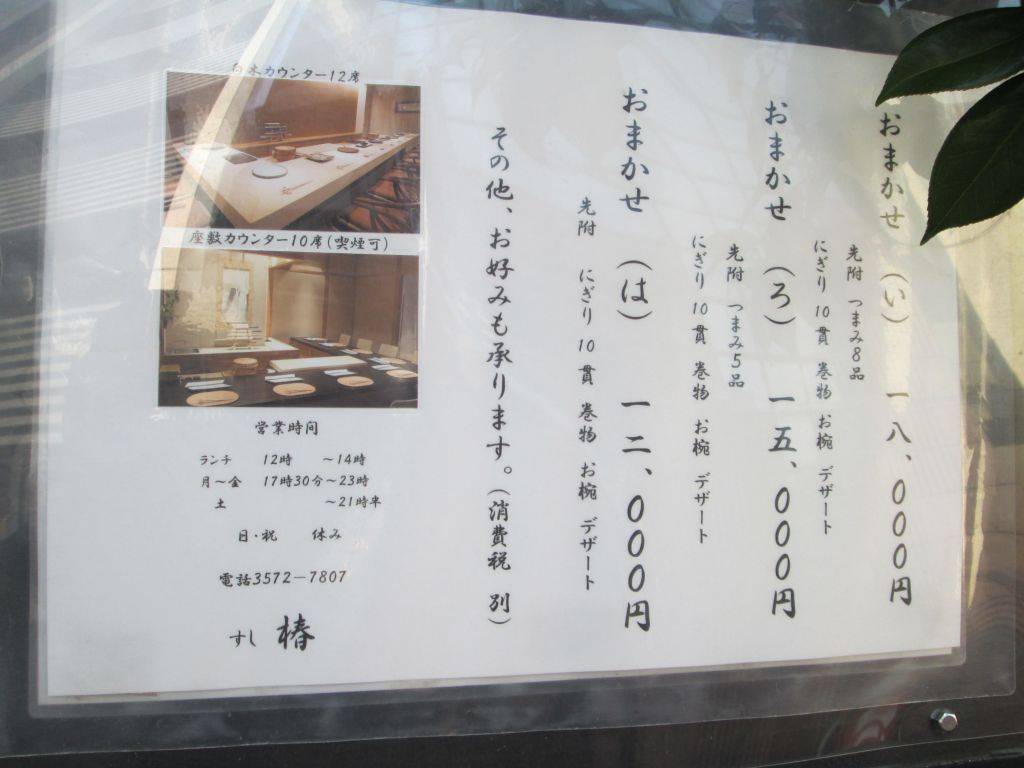 おまかせ（い） 一八、〇〇〇円
先附 つまみ8品
にぎり 10貫 巻物 お椀 デザート
おまかせ（ろ） 一五、〇〇〇円
先附 つまみ5品
にぎり 10貫 巻物 お椀 デザート
おまかせ（は） 一二、〇〇〇円
先附 にぎり 10貫 巻物 お椀 デザート
その他、お好みも承ります。（消費税 別）
白木カウンター12席
座敷カウンター10席(喫煙可)
営業時間
ランチ 12時 ～14時
月～金 17時30分～23時
土 ～21時半
日・祝 休み
電話3572－7807
すし 椿